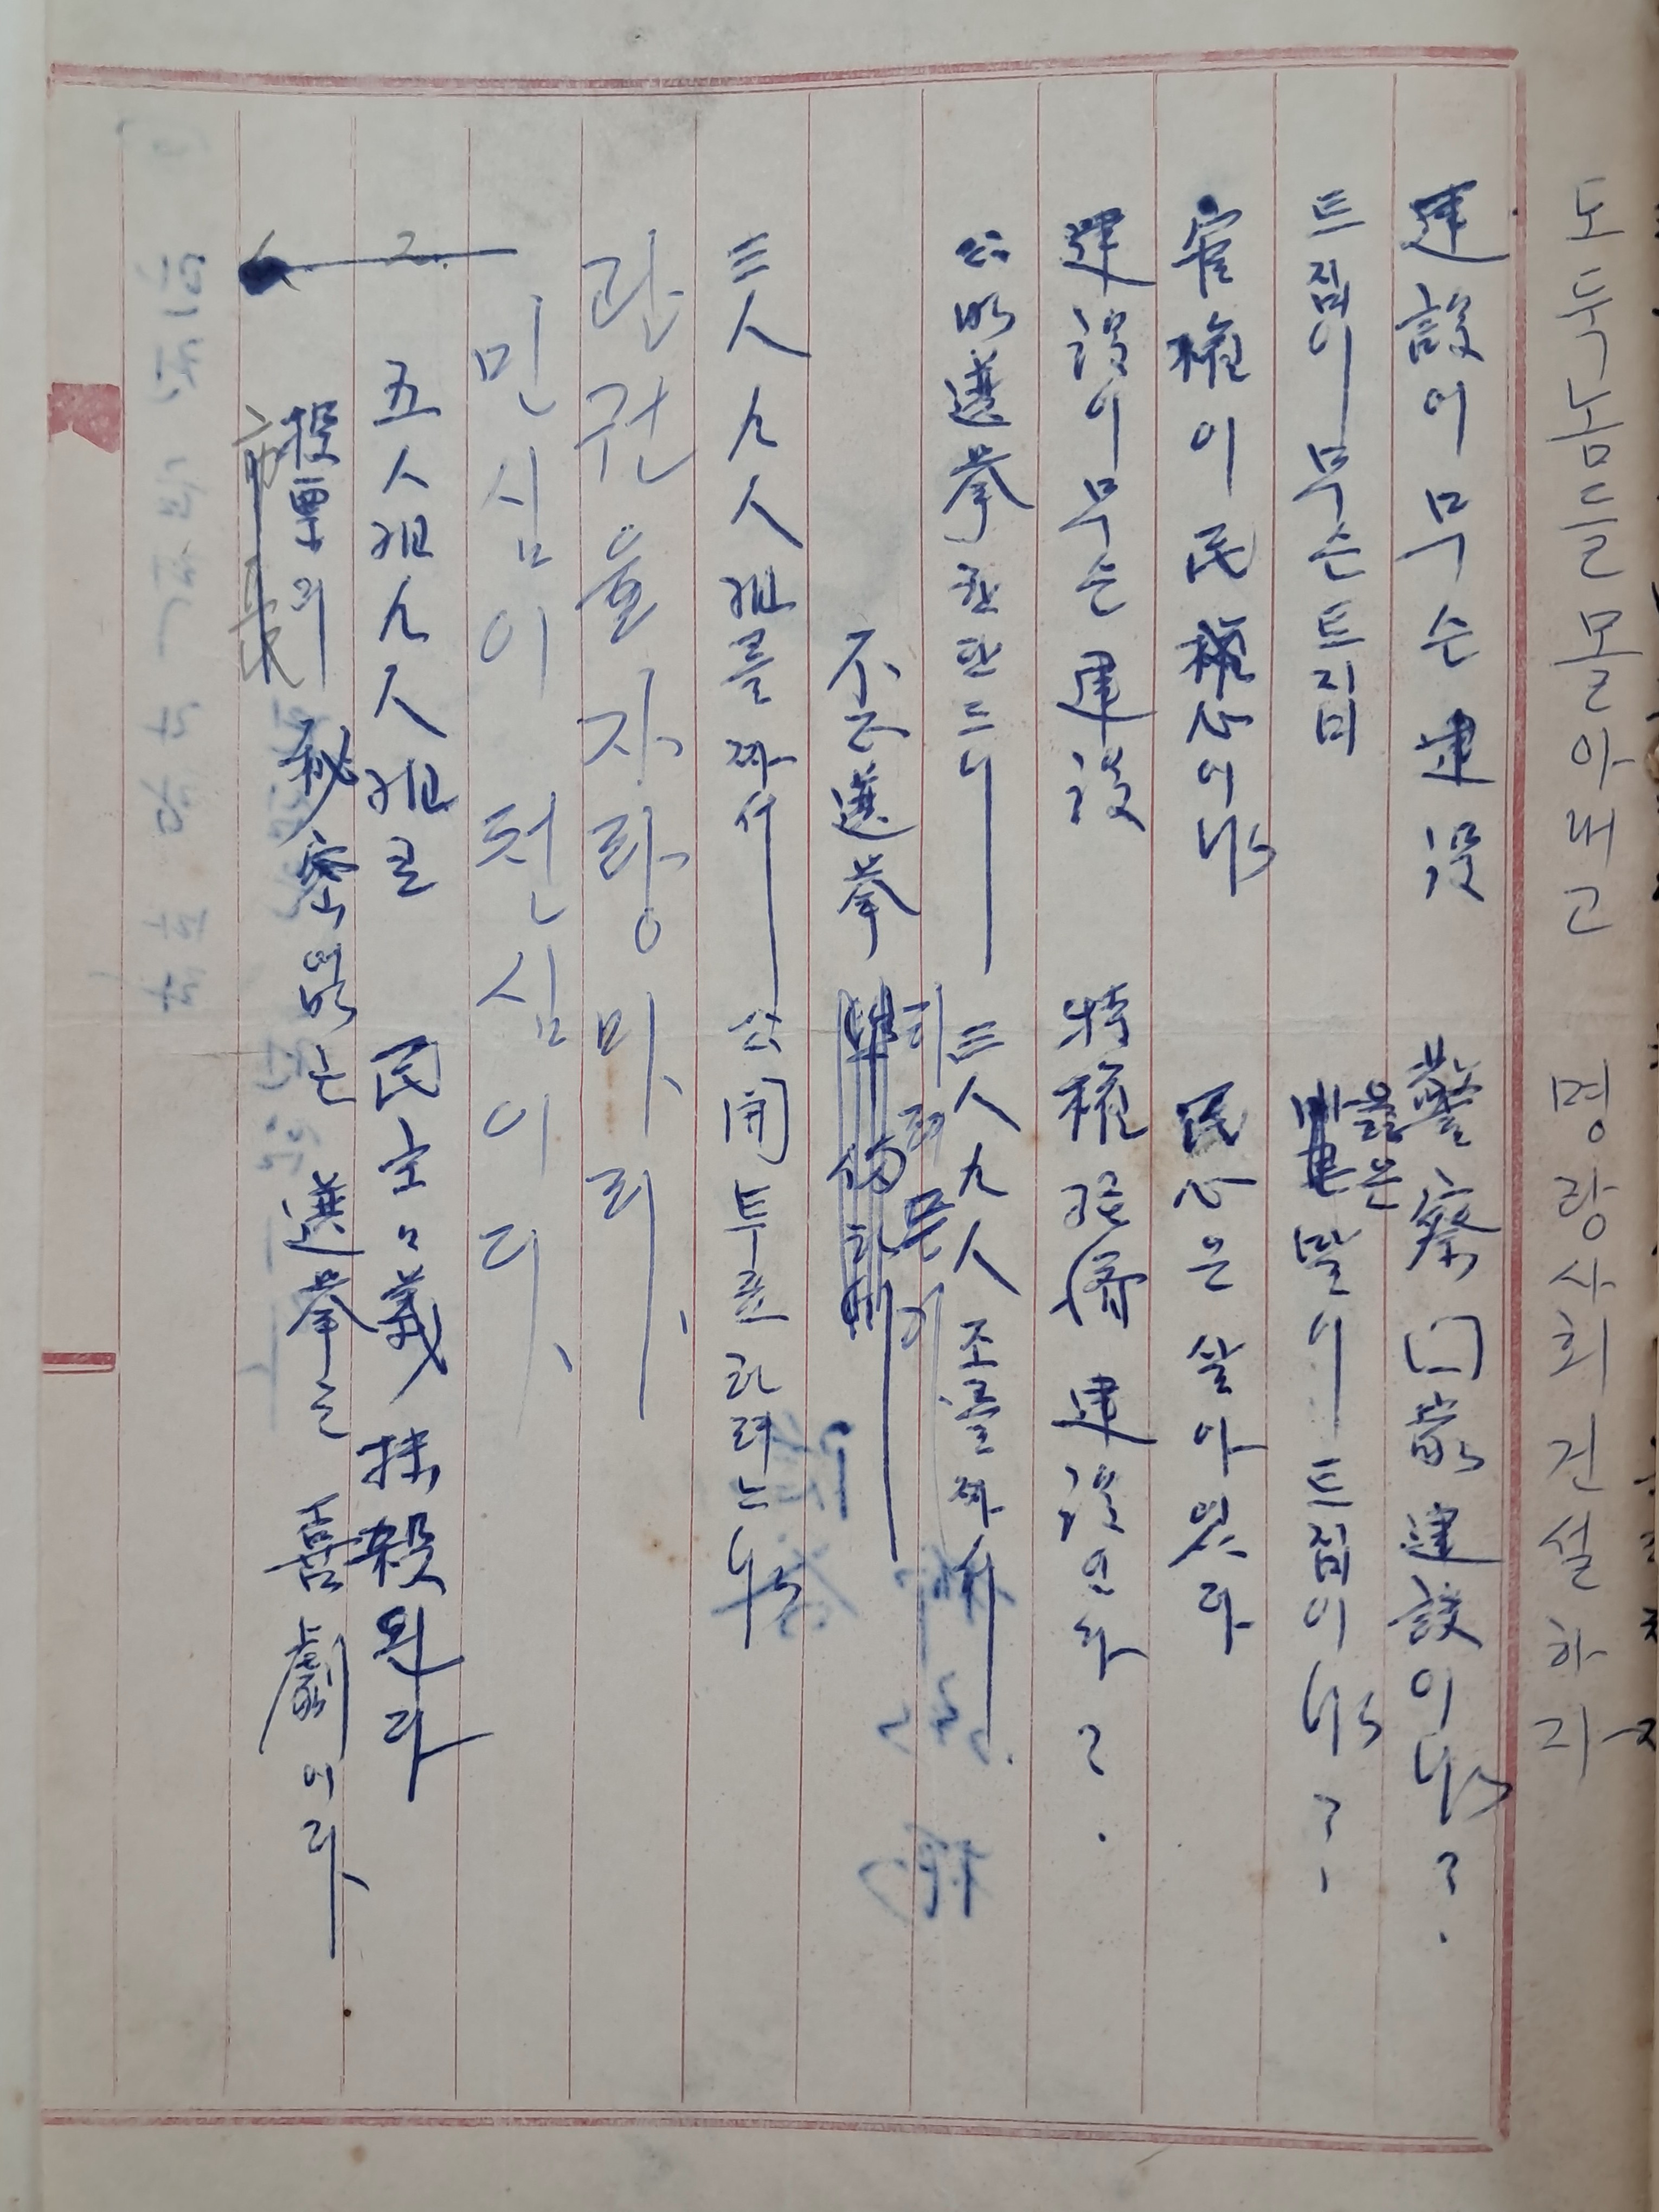 도둑놈들 몰아내고 명랑사회 건설하자
建設이 무슨 建設 警察国家 建設이냐?
트집이 무슨 트집 옳은 말이 트집이냐?
官權이 民権心이냐 民心은 살아 있다
建設이 무슨 建設 特権経済 建設인가?
公明選挙 한다드니 三人九人 조를 짜서
不正選挙
三人九人組를 짜서 公開투표 하려느냐
관권을 자랑마라
민심이 천심이다
2. 五人組九人組로 民主主義 抹殺된다
投票의 秘密 없는 選挙는 喜劇이라